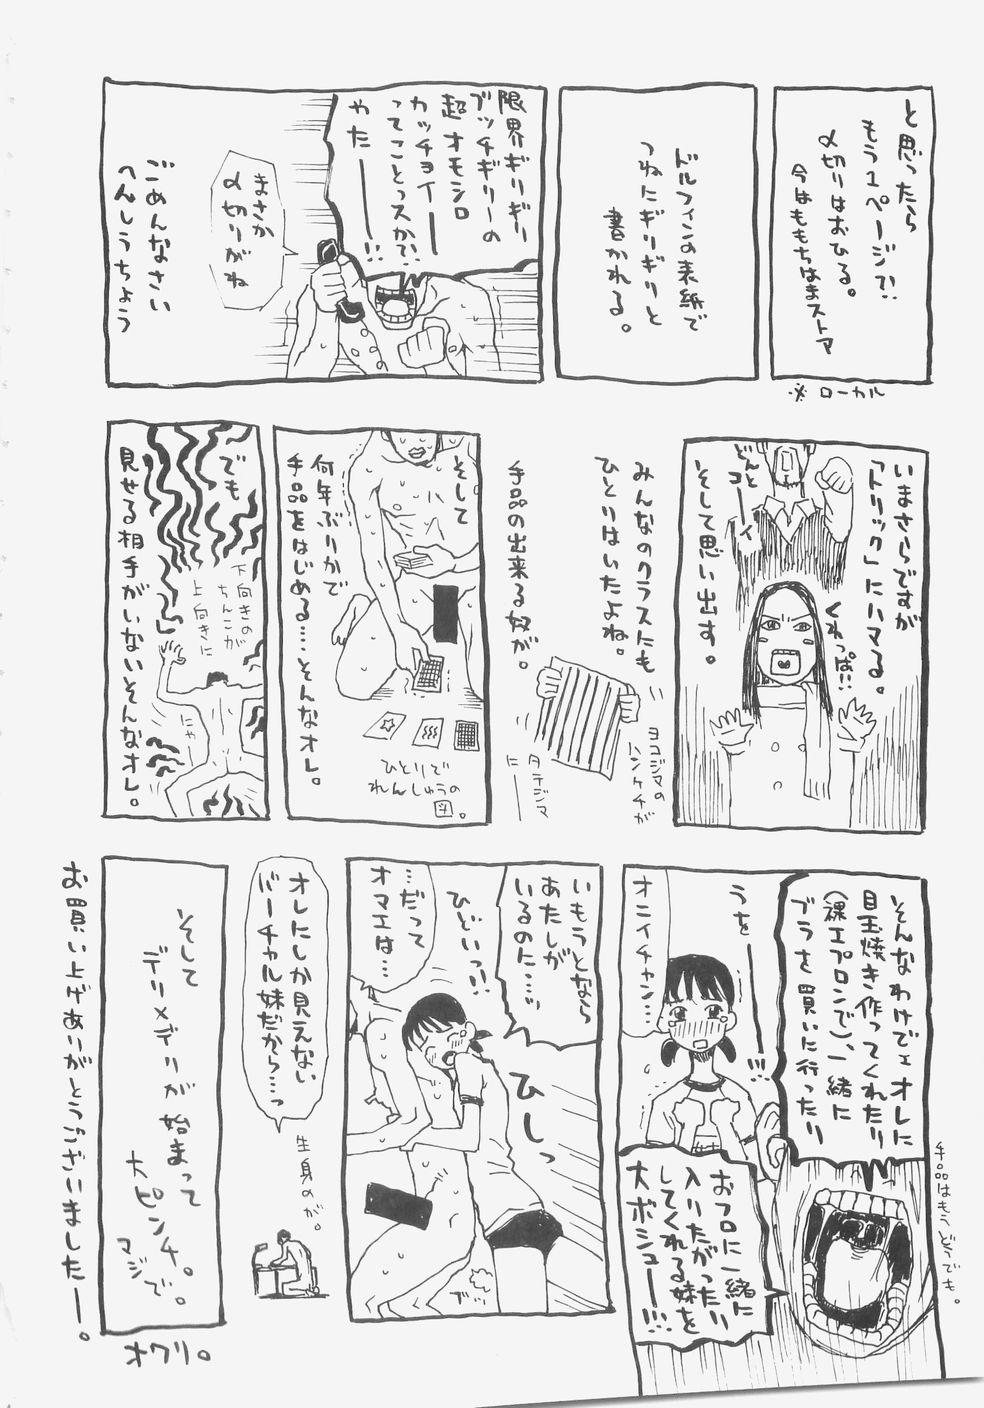 と思ったら
もう1ページ?!
〆切りはおひる。
今はももちはまストア
※ローカル
ドルフィンの表紙で
つねにギリギリと
書かれる。
限界ギリギリ
ブッチギリーの
超オモシロ
カッチョイー
ってことっスか?!
やたーーー!!
まさか
〆切りがね
ごめんなさい
へんしうちょう
いまさらですが
「トリック」にハマる。
そして思い出す。
どんと
コーイ
くわっぱ!!
みんなのクラスにも
ひとりはいたよね。
手品の出来る奴が。
ヨコジマの
ハンケチが
タテジマ
にーーー
そして
何年ぶりかで
手品をはじめる…そんなオレ。
ひとりで
れんしゅうの
図。
でも
見せる相手がいないそんなオレ。
下向きの
ちんこが
上向きに
にゃ
そんなわけでェオレに
目玉焼き作ってくれたり
(裸エプロンで)、一緒に
ブラを買いに行ったり
うをーーー!!!
オニイチャン…
おフロに一緒に
入りたがったり
してくれる妹を
大ボシュー!!!
手品はもうどうでも。
いもうとなら
あたしが
いるのに…ッ
ひどいっ!!
…だって
オマエは…
ひしっ
オレにしか見えない
バーチャル妹だから…っ
生身のが。
そして
デリメデリが始まって
大ピンチ。
マジで。
オワリ。
お買い上げありがとうございましたー。